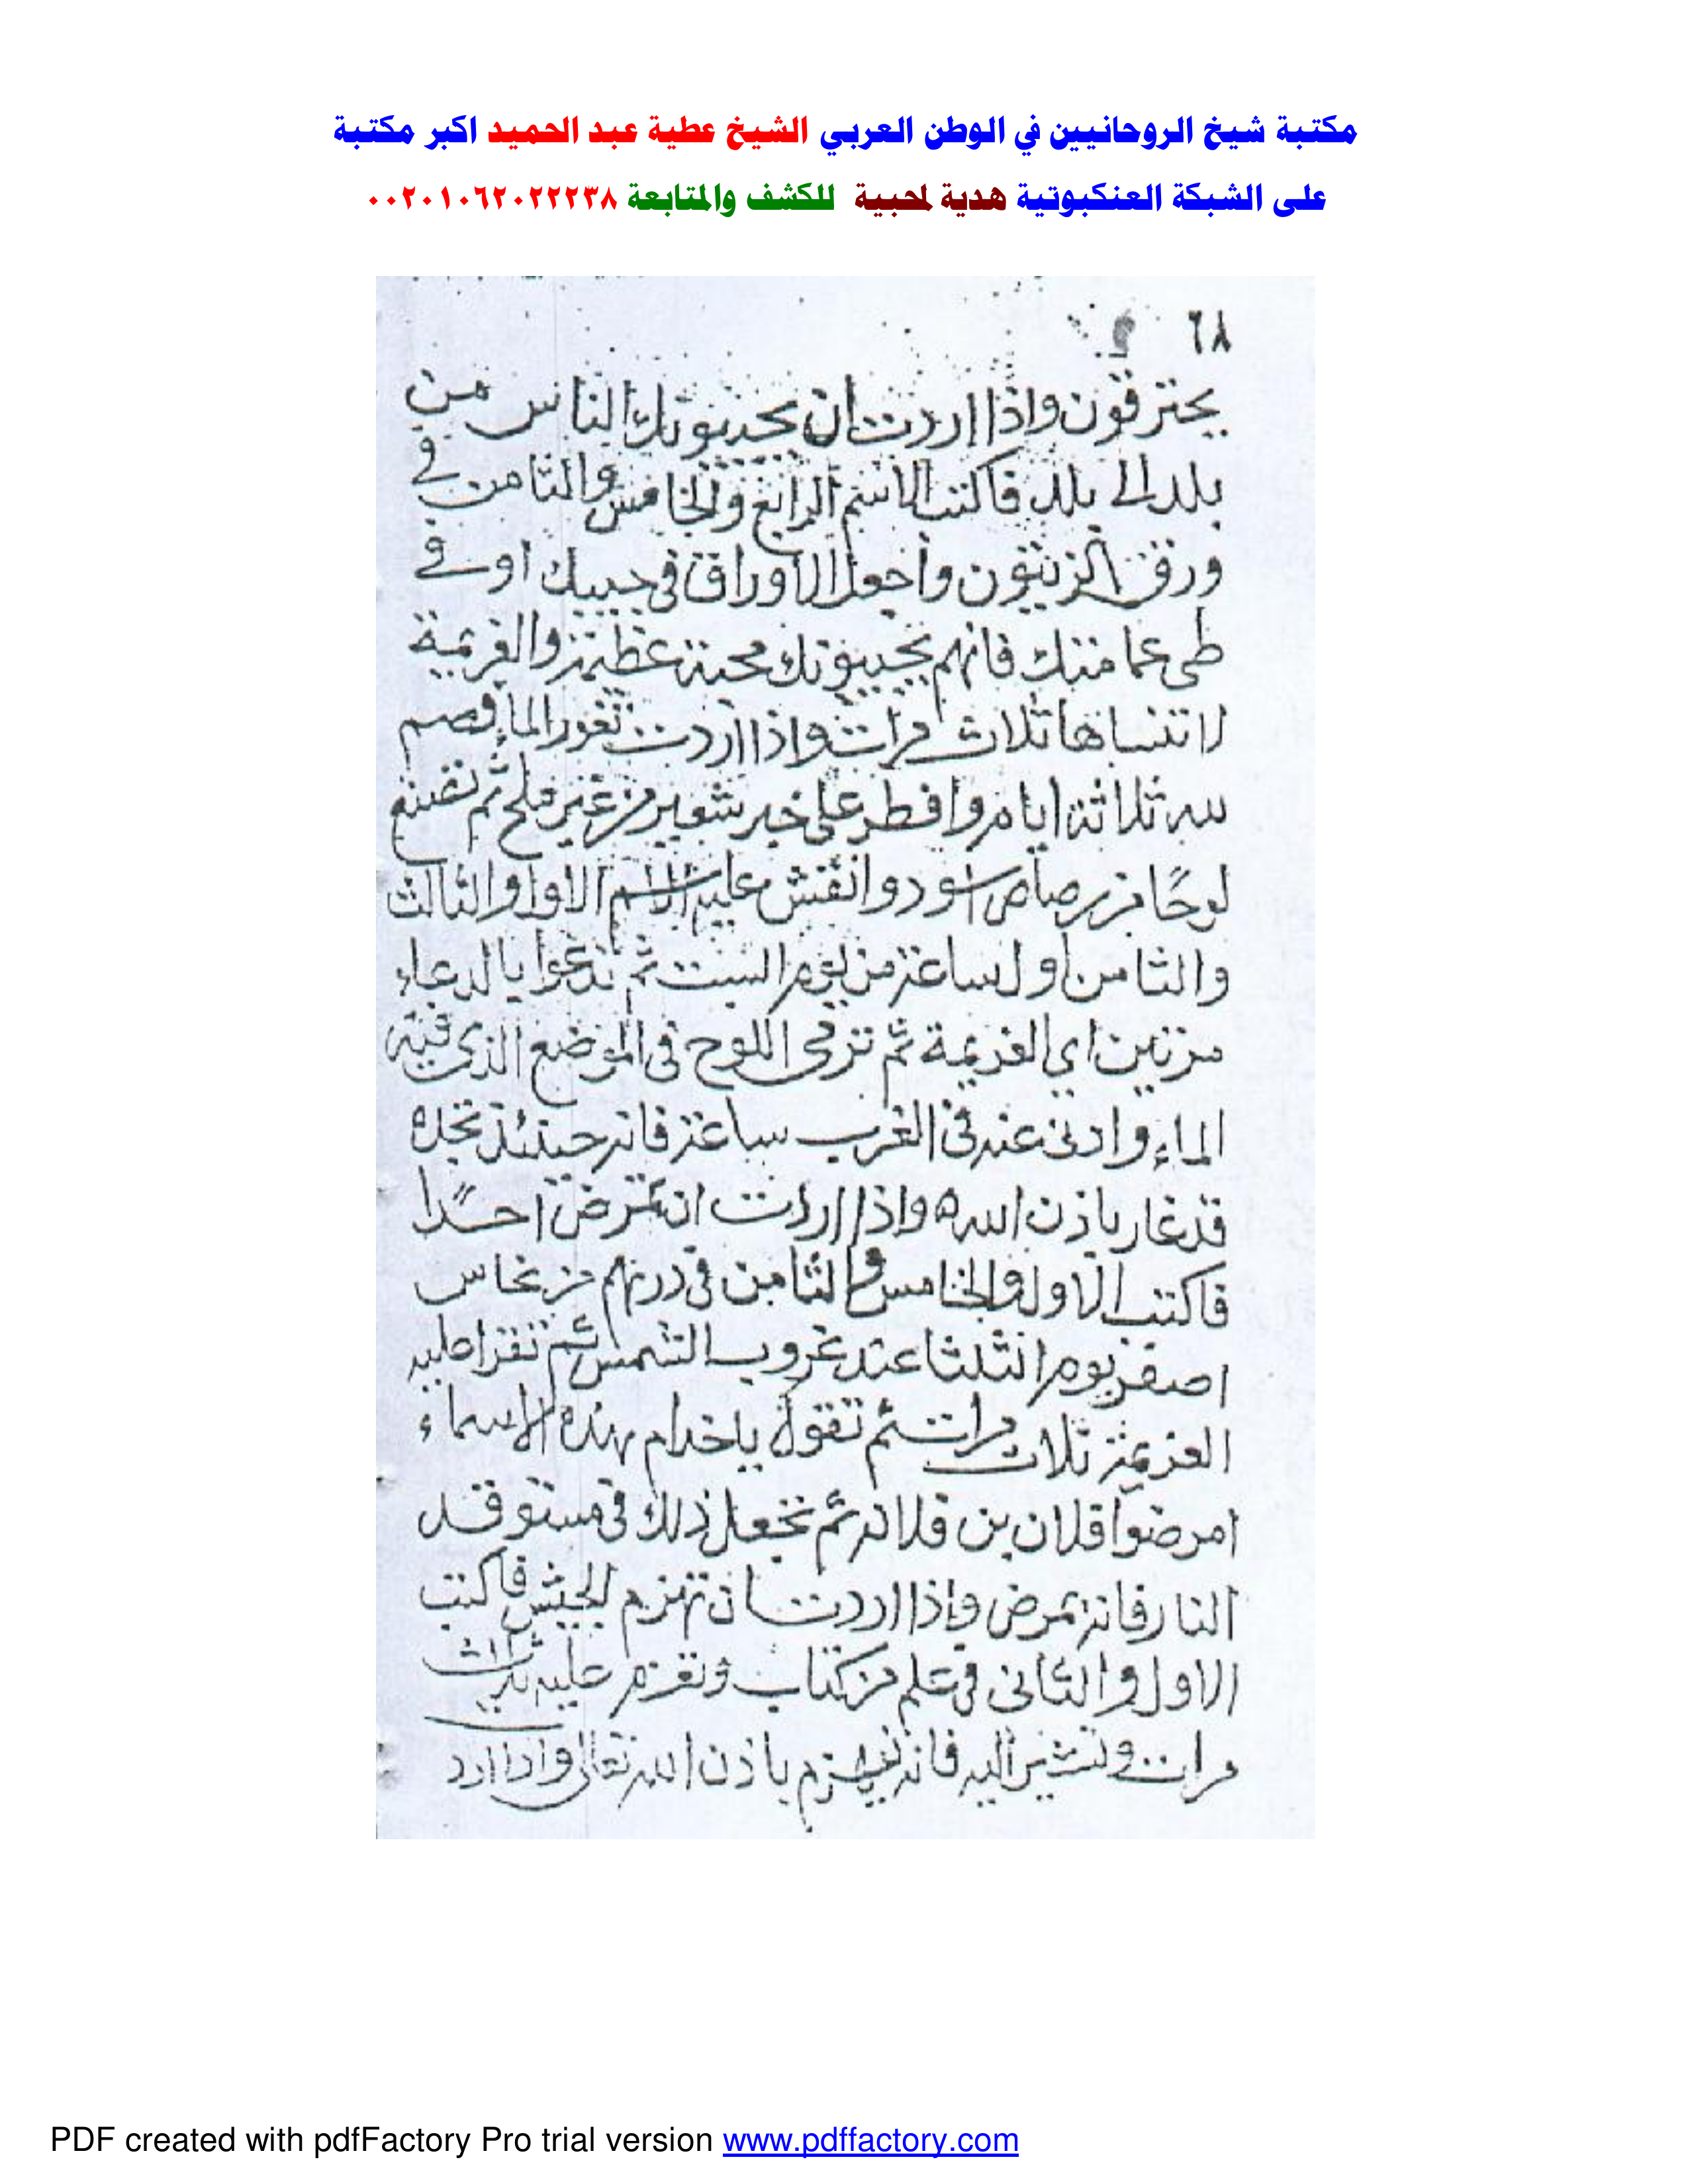 مكتبة شيخ الروحانيين في الوطن العربي الشيخ عطية عبد الحميد اكبر مكتبة
على الشبكة العنكبوتية هدية لمحبية للكشف والمتابعة ٠٠٢٠١٠٦٢٠٢٢٢٣٨
٦٨
يحترقون واذا اردت ان يحبونك الناس من
بلد الى بلد فاكتب الاسم الرابع والخامس والثامن في
ورق الزيتون واجعل الاوراق في جيبك او في
طى عمامتك فانهم يحبونك محبة عظيمة والعزيمة
لا تنساها ثلاث مرات واذا اردت تغور الماء فصم
لله ثلاثة ايام وافطر على خبز شعير من غير ملح ثم تصنع
لوحًا من رصاص اسود وانقش عليه الاسم الاول والثالث
والثامن اول ساعة من يوم السبت ثم تدعوا بالدعاء
مرتين اي العزيمة ثم ترمى اللوح في الموضع الذى فيه
الماء وادنى عنه في القرب ساعة فانه حينئذ تجده
قد غار باذن الله ه واذا اردت ان تمرض احدًا
فاكتب الاول والخامس والثامن في درهم من نحاس
اصفر يوم الثلثا عند غروب الشمس ثم تقرا عليه
العزيمة ثلاث مرات ثم تقول ياخدام هذه الاسماء
امرضوا فلان بن فلانه ثم تجعل ذلك في مستوقد
النار فانه يمرض واذا اردت ان تهزم الجيش فاكتب
الاول والثانى في علم من كتاب وتعزم عليه ثلاث
مرات وتشير اليه فانه ينهزم باذن الله تعالى واذا ارد
PDF created with pdfFactory Pro trial version www.pdffactory.com